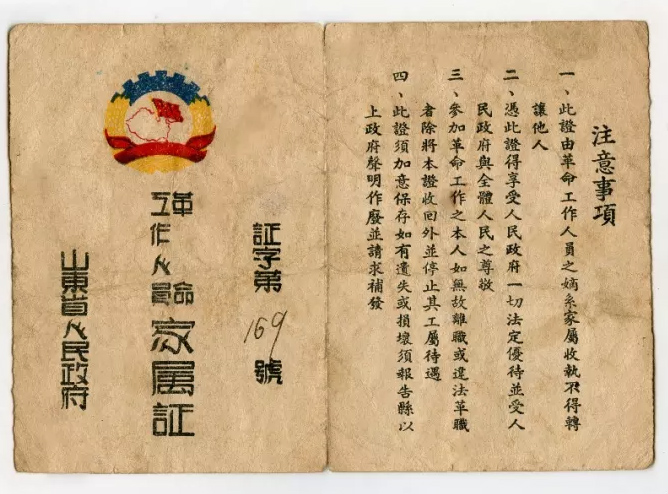 注意事項
一、此證由革命工作人員之嫡系家屬收執不得轉
讓他人
二、憑此證得享受人民政府一切法定優待並受人
民政府與全體人民之尊敬
三、參加革命工作之本人如無故離職或違法革職
者除將本證收回外並停止其工屬待遇
四、此證須加意保存如有遺失或損壞須報告縣以
上政府聲明作廢並請求補發
証字第169號
革命工作人員家属証
山東省人民政府